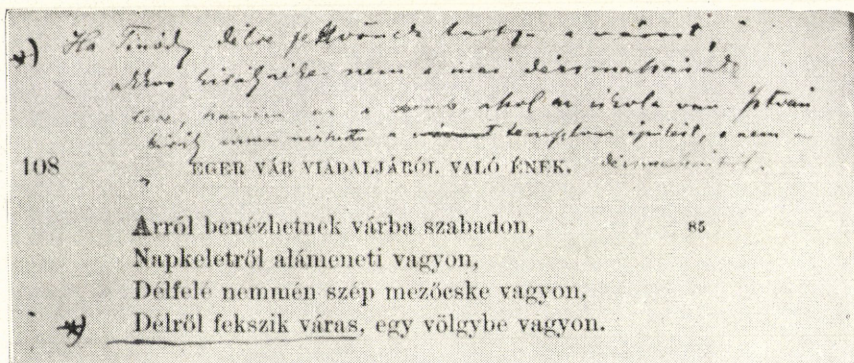 *) Ha Tinódy délre fekvőnek tartja a várost,
akkor királyszéke nem a mai
hanem az a domb, ahol az iskola van. István
király innen nézhette a templom építését, s nem a
108 EGER VÁR VIADALJÁRÓL VALÓ ÉNEK.
Arról benézhetnek várba szabadon, 85
Napkeletről alámeneti vagyon,
Délfelé nemmén szép mezőcske vagyon,
*) Délről fekszik váras, egy völgybe vagyon.